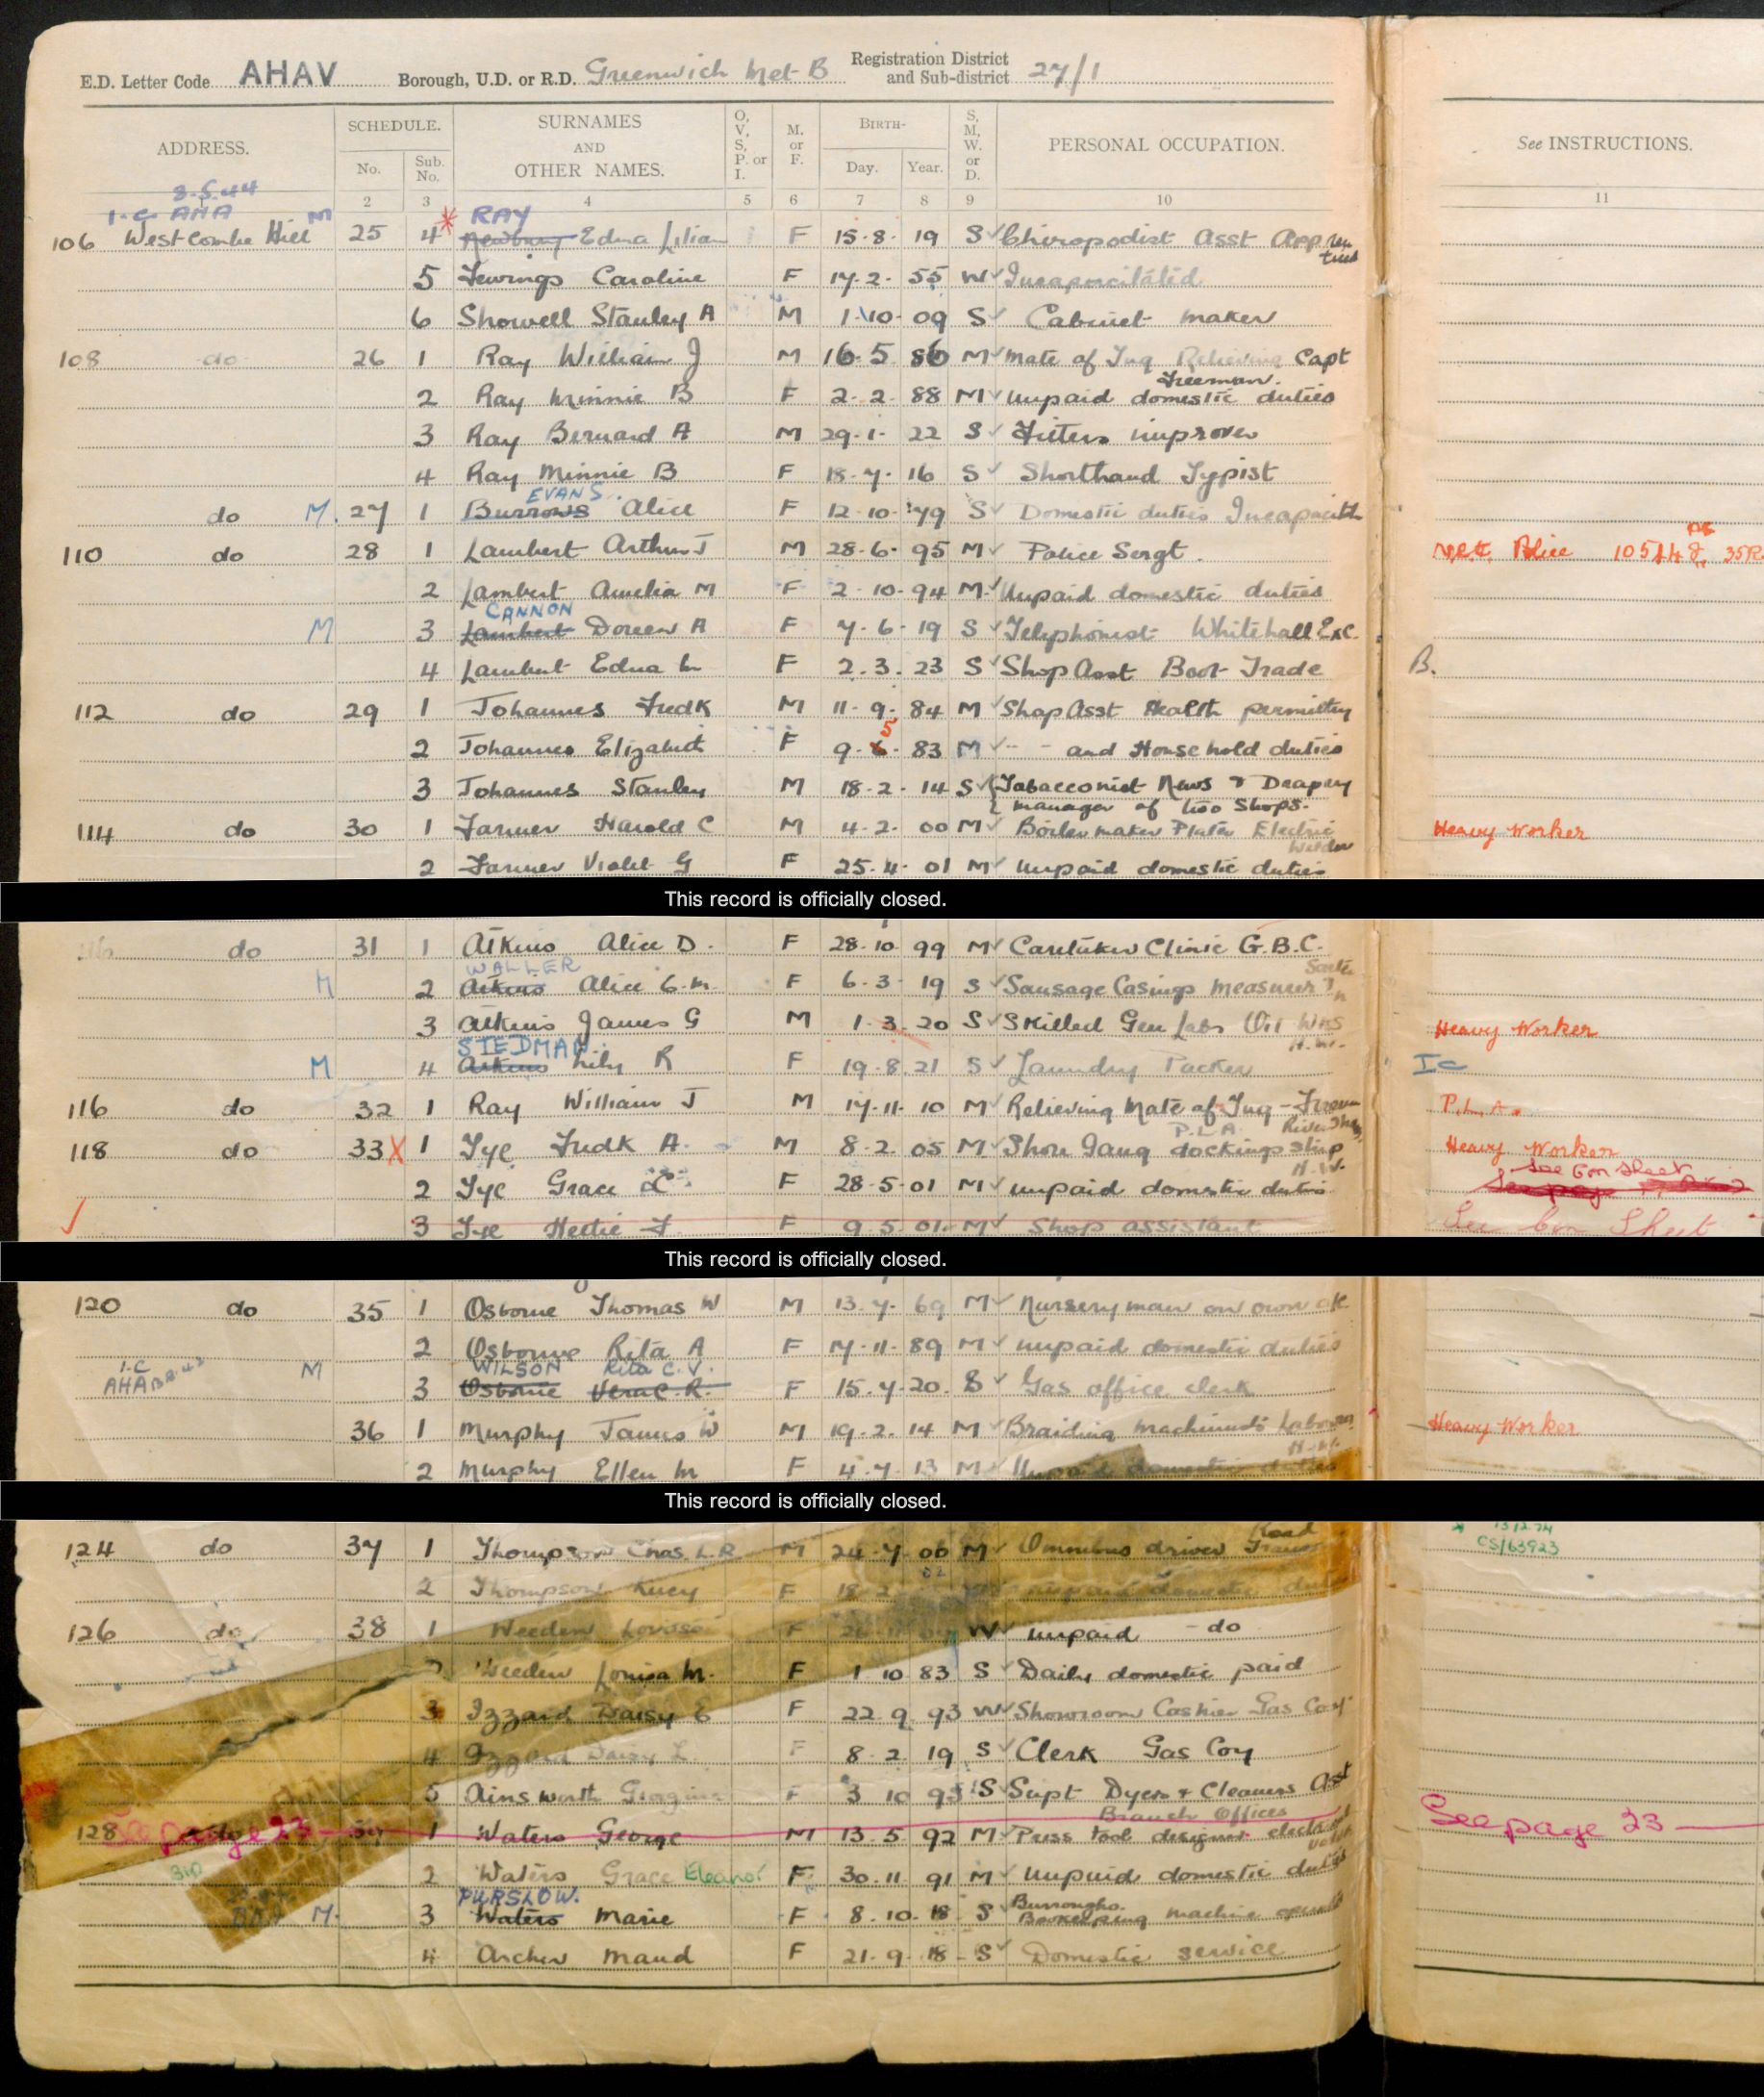 E.D. Letter Code AHAV Borough, U.D. or R.D. Greenwich Met B Registration District and Sub-district 27/1
ADDRESS. SCHEDULE. No. Sub. No. SURNAMES AND OTHER NAMES. O, V, S, P. or I. M. or F. BIRTH- Day. Year. S, M, W. or D. PERSONAL OCCUPATION. See INSTRUCTIONS.
2 3 4 5 6 7 8 9 10 11
8.5.44
I-C AHA M RAY
106 Westcombe Hill 25 4 Newbury Edna Lilian F 15·8· 19 S Chiropodist Asst Apprenticed
5 Jewings Caroline F 17·2· 55 W Incapacitated
6 Showell Stanley A M 1·10· 09 S Cabinet maker
108 do 26 1 Ray William J M 16·5 86 M Mate of Tug Relieving Capt
Freeman.
2 Ray Minnie B F 2·2· 88 M Unpaid domestic duties
3 Ray Bernard A M 29·1· 22 S Fitters improver
4 Ray Minnie B F 18·7· 16 S Shorthand Typist
EVANS
do M. 27 1 Burrows Alice F 12·10· 79 S Domestic duties
110 do 28 1 Lambert Arthur J M 28·6· 95 M Police Sergt. Police
2 Lambert Amelia M F 2·10·94 M Unpaid domestic duties
CANNON
M 3 Lambert Doreen A F 7·6·19 S Telephonist Whitehall Exc.
4 Lambert Edna F 2.3.23 S Shop Asst Boot Trade B.
112 do 29 1 Johannes Fredk M 11·9·84 M Shop Asst Health
5
2 Johannes Elizabeth F 9·6·83 M - - and Household duties
3 Johannes Stanley M 18·2·14 S Tobacconist News & Drapery
manager of two Shops.
114 do 30 1 Farmer Harold C M 4·2·00 M Boiler maker Plater Electric Welder Heavy Worker
2 Farmer Violet G F 25·4·01 M unpaid domestic duties
This record is officially closed.
do 31 1 Atkins Alice D. F 28·10 99 M Caretaker Clinic G.B.C.
WALLER
M 2 Atkins Alice F 6·3·19 S Sausage Casings measurer
3 Atkins James G M 1·3·20 S Skilled Gen Labr Oil Wks Heavy Worker
STEDMAN H.W.
M 4 Atkins Lily R F 19·8·21 S Laundry Packer IC
116 do 32 1 Ray William J M 17·11·10 M Relieving Mate of Tug P.L.A.
P.L.A.
118 do 33 X 1 Tye Fredk A. M 8·2·05 M Shore Gang docking ship Heavy Worker
H.W. See Con Sheet
2 Tye Grace F 28·5·01 M unpaid domestic duties
3 Tye Hettie F 9.5.01 M Shop assistant See Con Sheet
This record is officially closed.
120 do 35 1 Osborne Thomas W M 13.7.69 M Nurseryman on own a/c
2 Osborne Rita A F 17·11·89 M unpaid domestic duties
I.C M WILSON Rita C.V.
3 Osborne F 15.7.20. S Gas office clerk
36 1 Murphy James W M 19·2·14 M Braiding machinists Labourer Heavy Worker
H.W.
2 Murphy Ellen M F 4·7·13 M Unpaid domestic duties
This record is officially closed.
Road
124 do 37 1 Thompson Chas. L.R M 24·7·00 M Omnibus driver
CS/63923
02
2 Thompson Lucy F 18·2 domestic
126 do 38 1 Weeden F W unpaid - do
Weeden Louisa M. F 1·10 83 S Daily domestic paid
3 Izzard Daisy E F 22 9 93 W Showroom Cashier Gas Coy
4 Izzard Daisy L. F 8·2 19 S Clerk Gas Coy
5 Ainsworth F 3 10 93 S Supt Dyers & Cleaners Asst
Branch Offices
128 See page 23 39 1 Waters George M 13·5 92 M Press tool designer See page 23
2 Waters Grace Eleanor F 30.11 91 M unpaid domestic duties
PURSLOW. Burroughs
M. 3 Waters Marie F 8·10·18 S Bookkeeping machine operator
4 Archer Maud F 21·9·18 S Domestic service